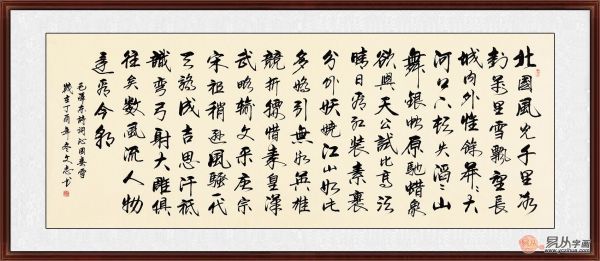 北國風光千里冰
封萬里雪飄望長
城內外惟餘莽々大
河上下頓失滔々山
舞銀蛇原馳蜡象
欲與天公試比高須
晴日看紅裝素裹
分外妖嬈江山如此
多嬌引無數英雄
競折腰惜秦皇漢
武略輸文采唐宗
宋祖稍遜風騷一代
天驕成吉思汗祇
識彎弓射大雕俱
往矣數風流人物
還看今朝
毛澤東詩詞沁園春雪
歲在丁酉年冬文忠書
易从字画
www.yczihua.com